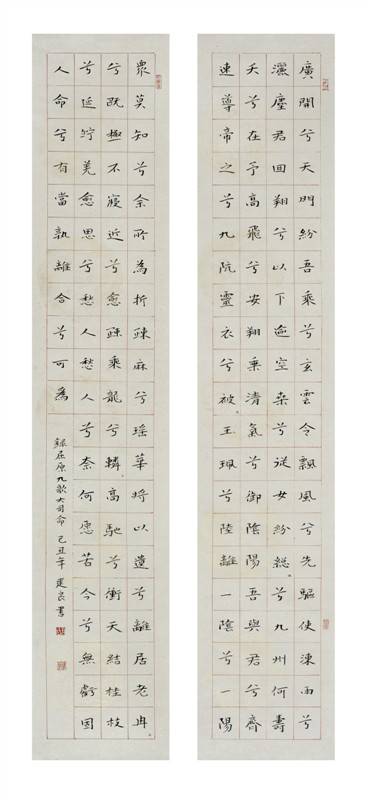 廣開兮天門紛吾乘兮玄雲令飄風兮先驅使涷雨兮
灑塵君回翔兮以下逾空桑兮從女紛總兮九州何壽
夭兮在予高飛兮安翔乘清氣兮御陰陽吾與君兮齊
速導帝之兮九阬靈衣兮被玉珮兮陸離一陰兮一陽
眾莫知兮余所為折疎麻兮瑶華將以遺兮離居老冉
兮既極不寖近兮愈疎乘龍兮轔高馳兮衝天結桂枝
兮延竚羌愈思兮愁人愁人兮奈何愿若今兮無虧固
人命兮有當孰離合兮可為
録屈原九歌大司命 己丑年 建良書